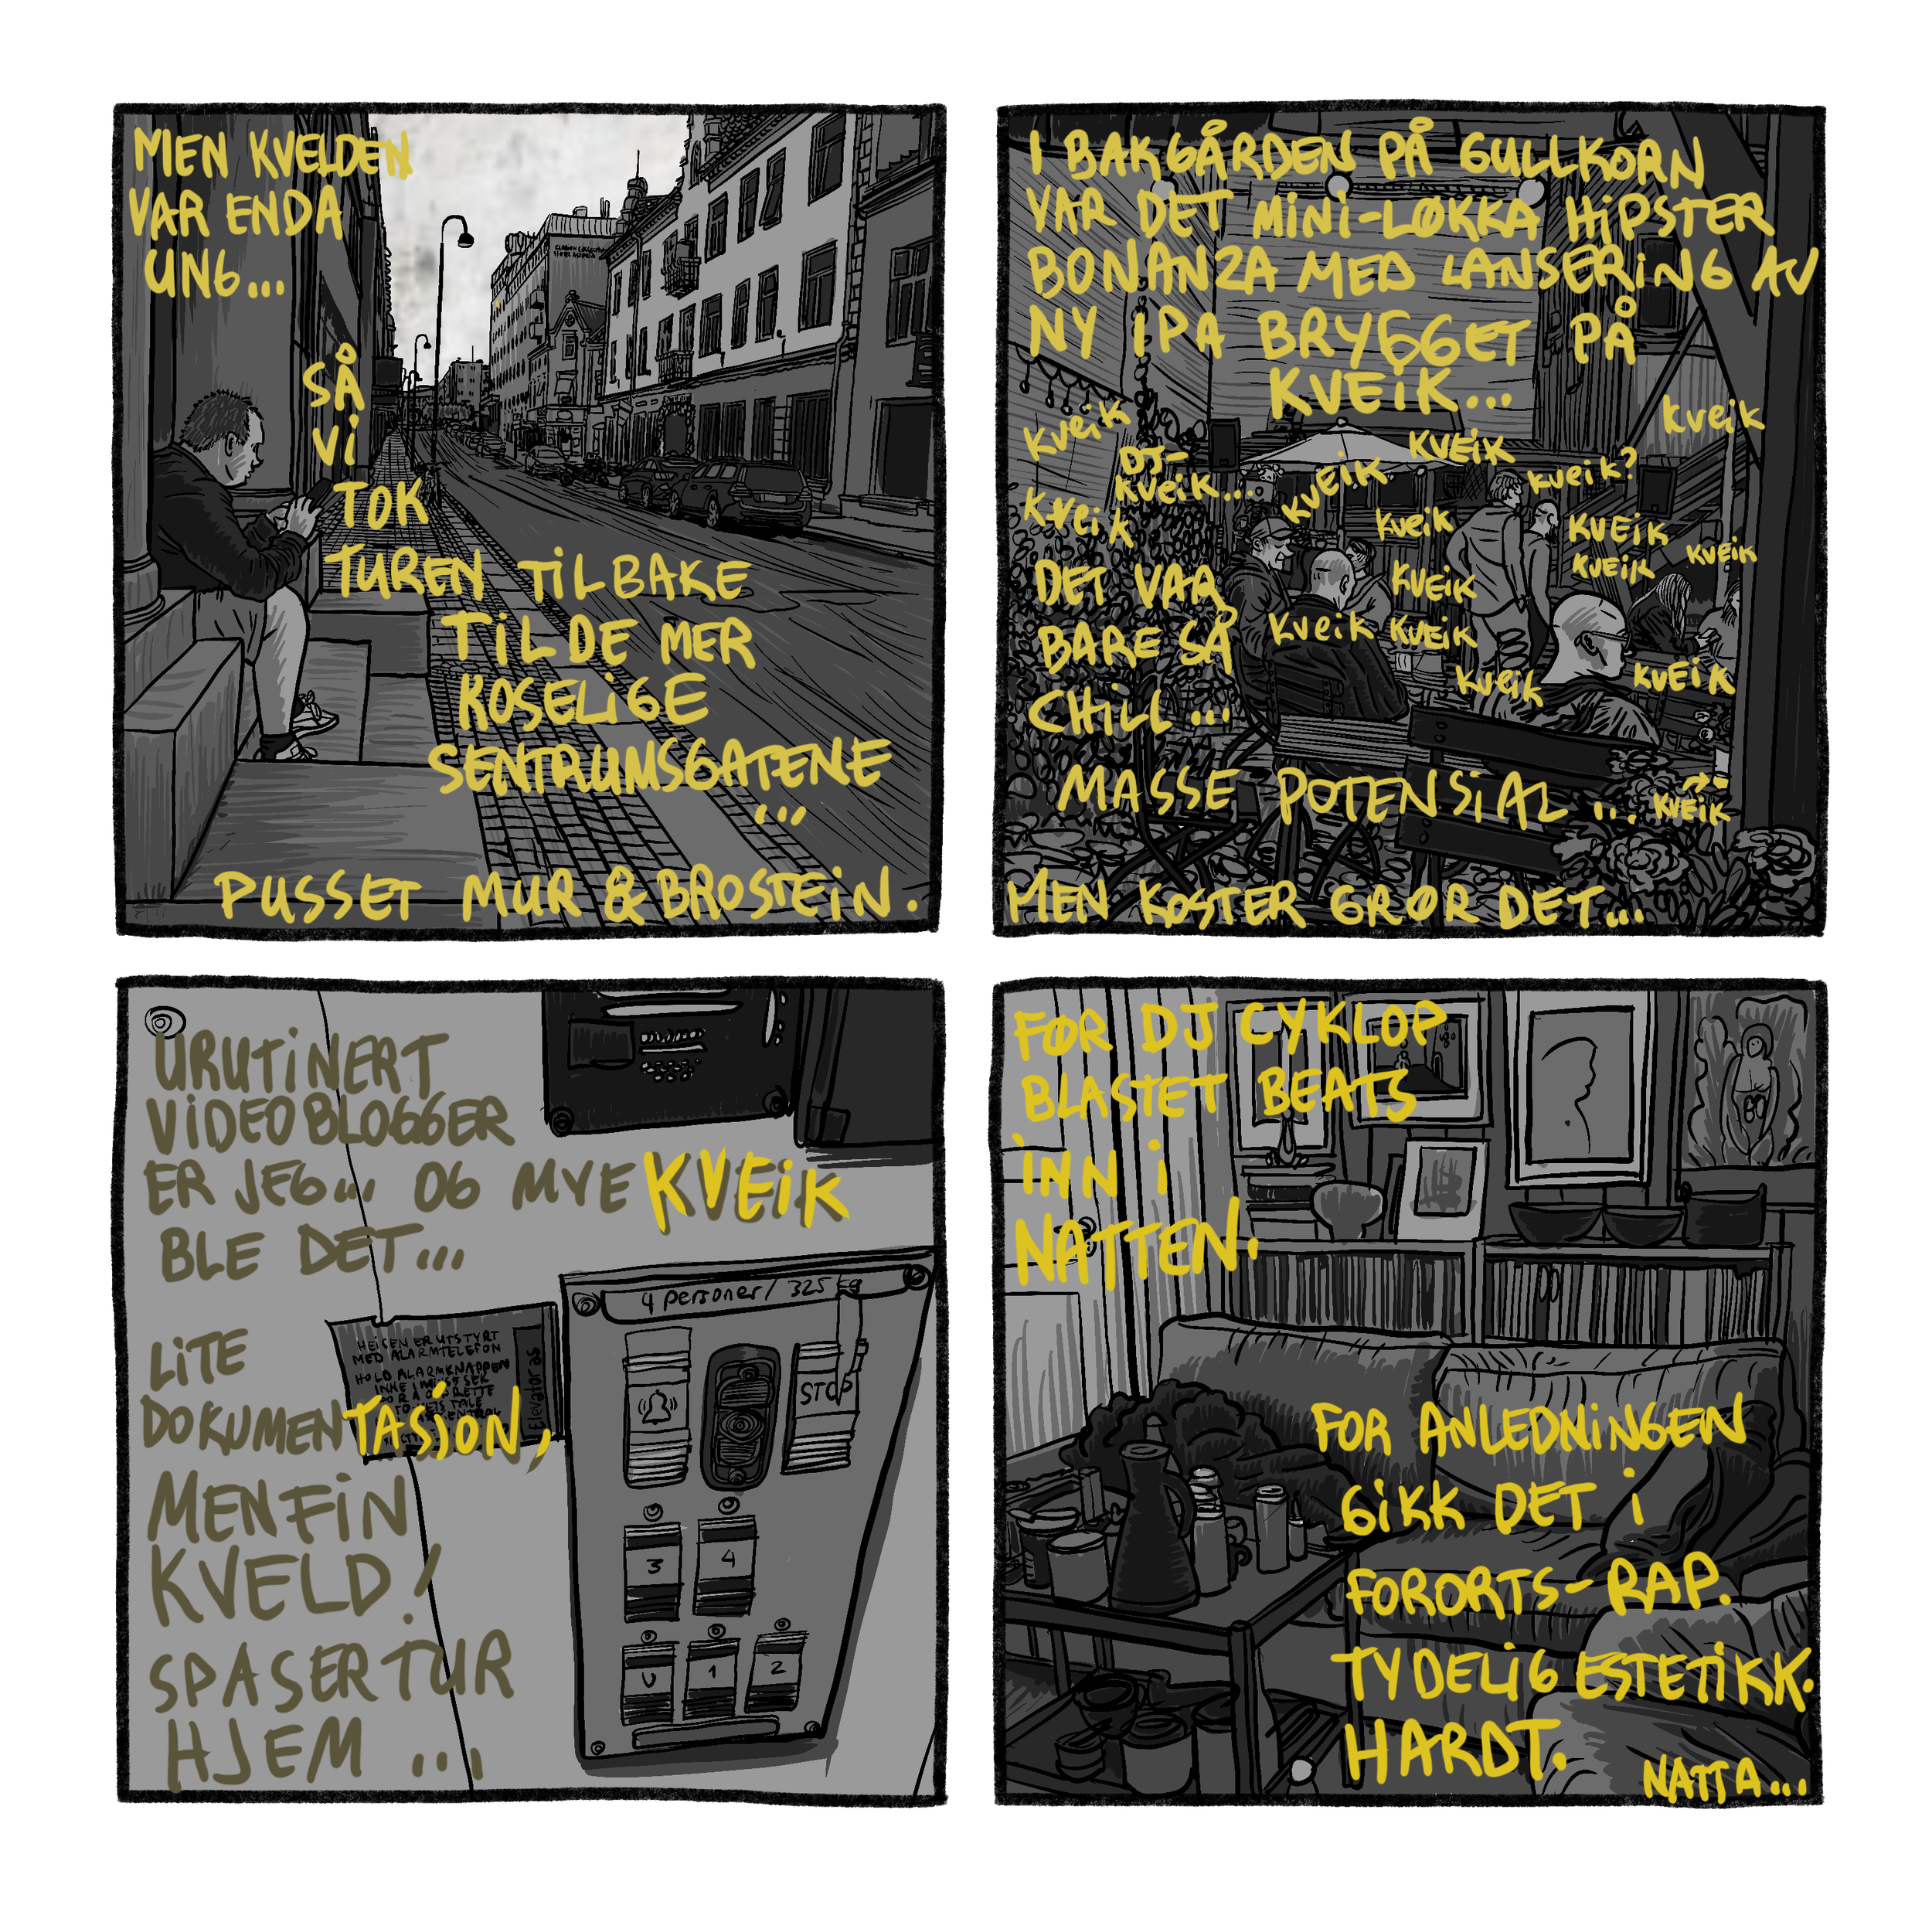 MEN KVELDEN
VAR ENDA
UNG...
SÅ
Vi
TOK
TUREN TiLBAKE
TiL DE MER
KOSELiGE
SENTRUMSGATENE
...
PUSSET MUR & BROSTEiN.
I BAKGÅRDEN PÅ GULLKORN
VAR DET MiNi-LØKKA HiPSTER
BONANZA MED LANSERiNG AV
NY IPA BRYGGET PÅ
KVEiK...
kveik
kveik
DJ-
kveik...
KVEiK
KVEiK
kveik?
Kveik
kveik
KVEiK
KVEiK
KVEiK
DET VAR
BARE SÅ
CHiLL...
KVEiK
Kveik
KVEiK
kveik
KVEiK
MASSE POTENSiAL...
KVEiK
MEN KOSTER GRØR DET...
URUTiNERT
ViDEOBLOGGER
ER JEG... OG MYE KVEiK
BLE DET...
LiTE
DOKUMENTASJON,
MEN FiN
KVELD!
SPASERTUR
HJEM ...
4 personer / 325 kg
HEiSEN ER UTSTYRT
MED ALARMTELEFON
HOLD ALARMKNAPPEN
Elevator as
STOP
3 4
U 1 2
FØR DJ CYKLOP
BLASTET BEATS
iNN i
NATTEN.
FOR ANLEDNiNGEN
GiKK DET i
FORORTS-RAP.
TYDELiG ESTETiKK.
HARDT.
NATTA...